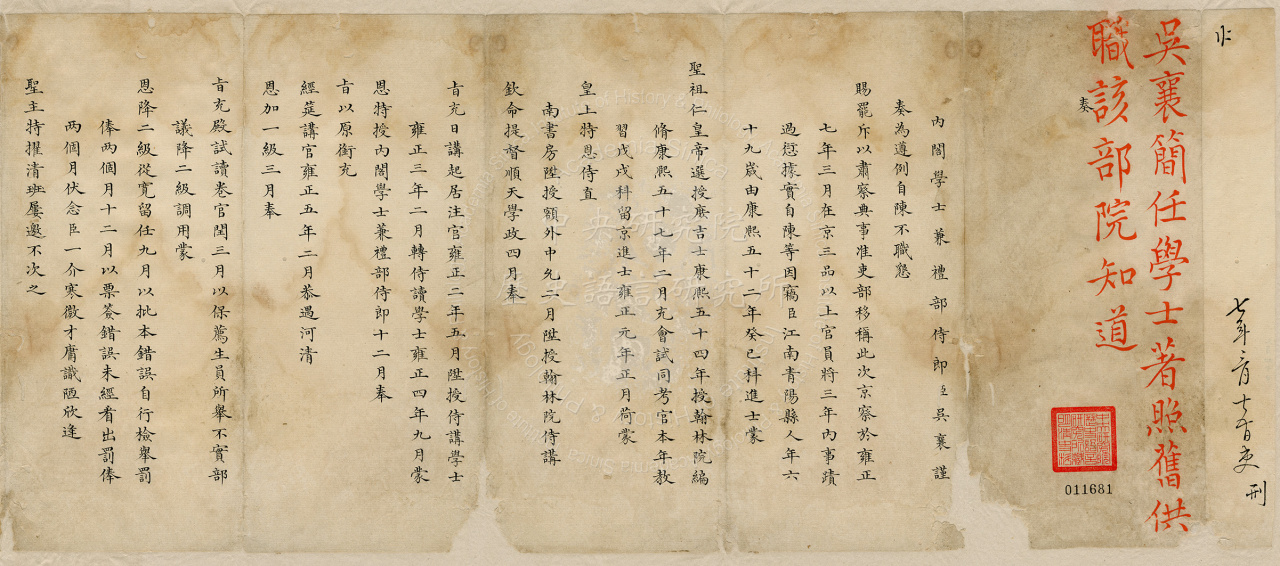 七年三月十二日吏 刑
吳襄簡任學士著照舊供
職該部院知道
奏
011681
內閣學士兼禮部侍郎臣吳襄謹
奏為遵例自陳不職懇
賜罷斥以肅察典事准吏部移稱此次京察於雍正
七年三月在京三品以上官員將三年內事蹟
過愆據實自陳等因竊臣江南青陽縣人年六
十九歲由康熙五十二年癸巳科進士蒙
聖祖仁皇帝選授庶吉士康熙五十四年授翰林院編
脩康熙五十七年二月充會試同考官本年教
習戊戌科留京進士雍正元年正月荷蒙
皇上特恩侍直
南書房陞授額外中允二月陞授翰林院侍講
欽命提督順天學政四月奉
旨充日講起居注官雍正二年五月陞授侍講學士
雍正三年二月轉侍讀學士雍正四年九月蒙
恩特授內閣學士兼禮部侍郎十二月奉
旨以原銜充
經筵講官雍正五年二月恭遇河清
恩加一級三月奉
旨充殿試讀卷官閏三月以保薦生員所舉不實部
議降二級調用蒙
恩降二級從寬留任九月以批本錯誤自行檢舉罰
俸兩個月十二月以票簽錯誤未經看出罰俸
兩個月伏念臣一介寒微才庸識陋欣逢
聖主特擢清班屢邀不次之
中央研究院
歷史語言研究所